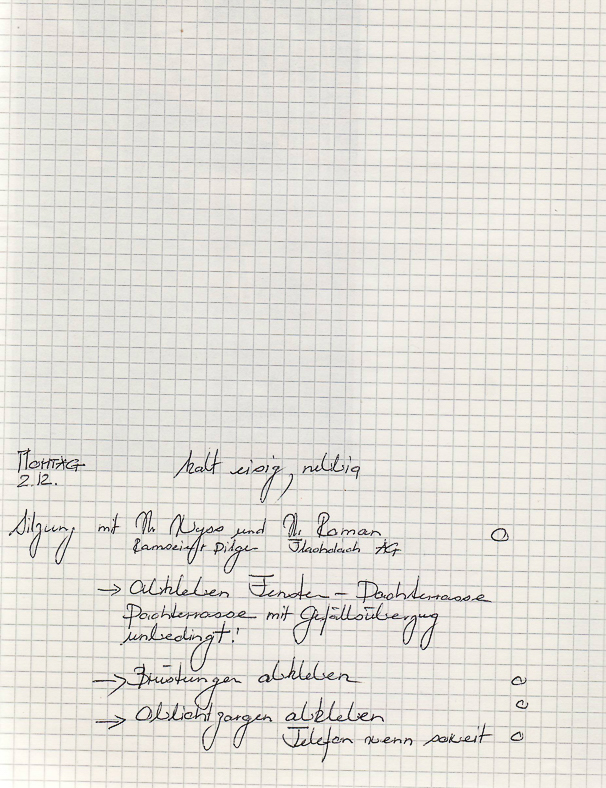 MONTAG kalt eisig, neblig
2.12.
Sitzung mit H. Wyss und H. Roman
Ramseier Dilger Flachdach AG
→ Abkleben Fenster - Dachterrasse
Dachterrasse mit Gefällsüberzug
unbedingt!
→ Brüstungen abkleben
→ Oblichtzargen abkleben
Telefon wenn soweit